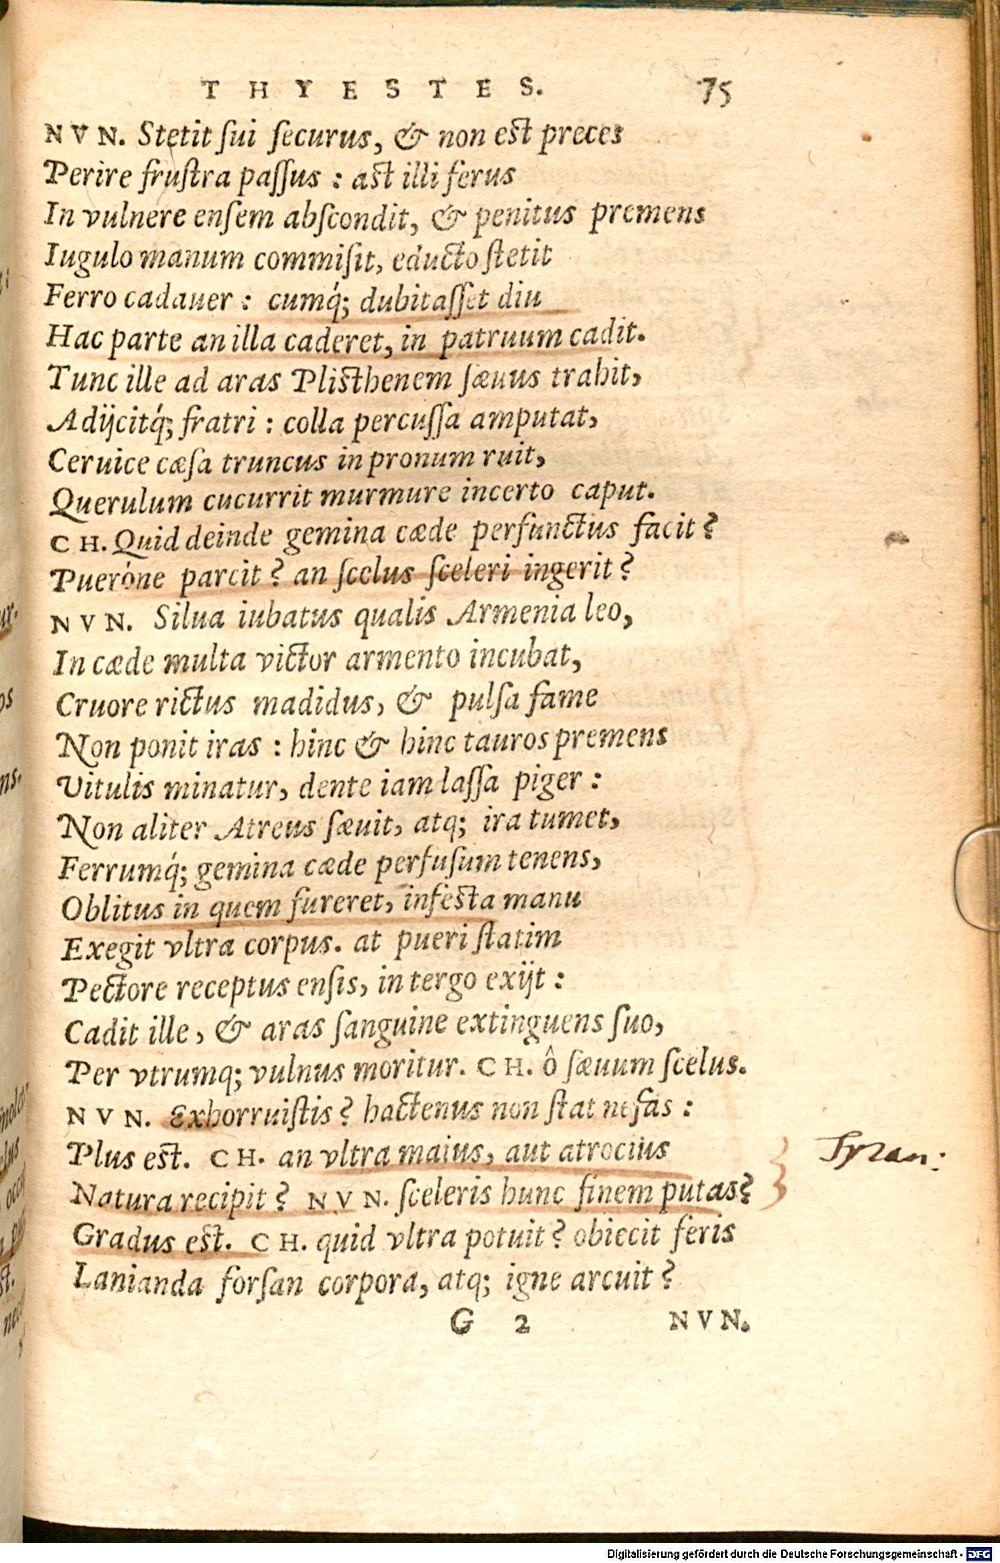 THYESTES. 75
NVN. Stetit sui securus, & non est preces
Perire frustra passus : ast illi ferus
In vulnere ensem abscondit, & penitus premens
Iugulo manum commisit, educto stetit
Ferro cadauer : cumq́; dubitasset diu
Hac parte an illa caderet, in patruum cadit.
Tunc ille ad aras Plisthenem sæuus trahit,
Adijcitq́; fratri : colla percussa amputat,
Ceruice cæsa truncus in pronum ruit,
Querulum cucurrit murmure incerto caput.
CH. Quid deinde gemina cæde perfunctus facit?
Pueróne parcit? an scelus sceleri ingerit?
NVN. Silua iubatus qualis Armenia leo,
In cæde multa victor armento incubat,
Cruore rictus madidus, & pulsa fame
Non ponit iras : hinc & hinc tauros premens
Vitulis minatur, dente iam lassa piger :
Non aliter Atreus sæuit, atq; ira tumet,
Ferrumq́; gemina cæde perfusum tenens,
Oblitus in quem fureret, infesta manu
Exegit vltra corpus. at pueri statim
Pectore receptus ensis, in tergo exijt :
Cadit ille, & aras sanguine extinguens suo,
Per vtrumq; vulnus moritur. CH. ô sæuum scelus.
NVN. Exhorruistis? hactenus non stat nefas :
Plus est. CH. an vltra maius, aut atrocius
Natura recipit? NVN. sceleris hunc finem putas?
Gradus est. CH. quid vltra potuit? obiecit feris
Lanianda forsan corpora, atq; igne arcuit?
G 2 NVN.
Tyran:
Digitalisierung gefördert durch die Deutsche Forschungsgemeinschaft - DFG